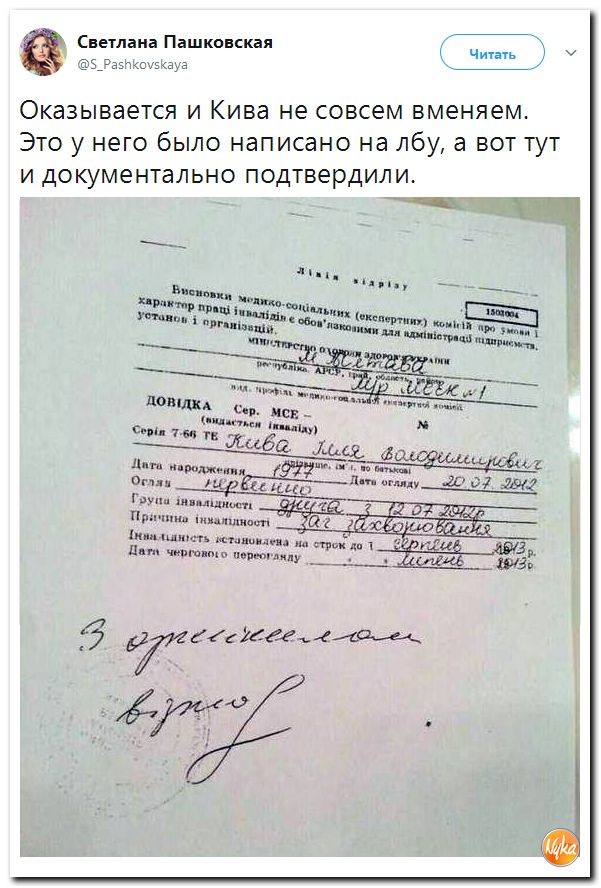 Светлана Пашковская
@S_Pashkovskaya
Читать
Оказывается и Кива не совсем вменяем.
Это у него было написано на лбу, а вот тут
и документально подтвердили.
Лінія відрізу
1503004
Висновки медико-соціальних (експертних) комісій про умови і
характер праці інвалідів є обов'язковими для адміністрації підприємств,
установ і організацій.
МІНІСТЕРСТВО ОХОРОНИ ЗДОРОВ'Я УКРАЇНИ
м Полтава
республіка, АРСР, край, область, район
МСЕК №1
вид, профіль медико-соціальної експертної комісії
ДОВІДКА Сер. МСЕ – №
(видається інваліду)
Серія 7-66 ТЕ Кива Ілля Володимирович
прізвище, ім'я, по батькові
Дата народження 1977 Дата огляду 20.07.2012
Огляд первинно
Група інвалідності друга з 12.07.2012р
Причина інвалідності заг захворювання
Інвалідність встановлена на строк до 1 серпень 2013 р.
Дата чергового переогляду " " липень 2013 р.
З оригіналом
вірно
Nyka